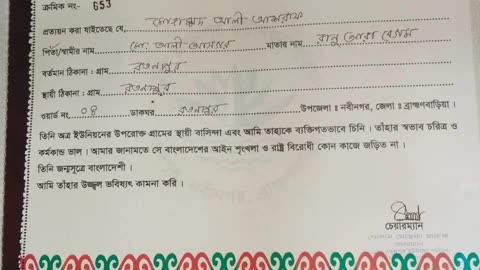 ক্রমিক নং- 653
প্রত্যয়ন করা যাইতেছে যে, মোহাম্মদ আলী আশরাফ
পিতা/স্বামীর নাম মো: আলী আজগর মাতার নাম রানু আরা বেগম
বর্তমান ঠিকানা : গ্রাম রতনপুর
স্থায়ী ঠিকানা : গ্রাম রতনপুর
ওয়ার্ড নং ০৪ ডাকঘর রতনপুর উপজেলা : নবীনগর, জেলা : ব্রাহ্মণবাড়িয়া।
তিনি অত্র ইউনিয়নের উপরোক্ত গ্রামের স্থায়ী বাসিন্দা এবং আমি তাহাকে ব্যক্তিগতভাবে চিনি। তাঁহার স্বভাব চরিত্র ও
কর্মকান্ড ভাল। আমার জানামতে সে বাংলাদেশের আইন শৃংখলা ও রাষ্ট্র বিরোধী কোন কাজে জড়িত না।
তিনি জন্মসূত্রে বাংলাদেশী।
আমি তাঁহার উজ্জ্বল ভবিষ্যৎ কামনা করি।
চেয়ারম্যান